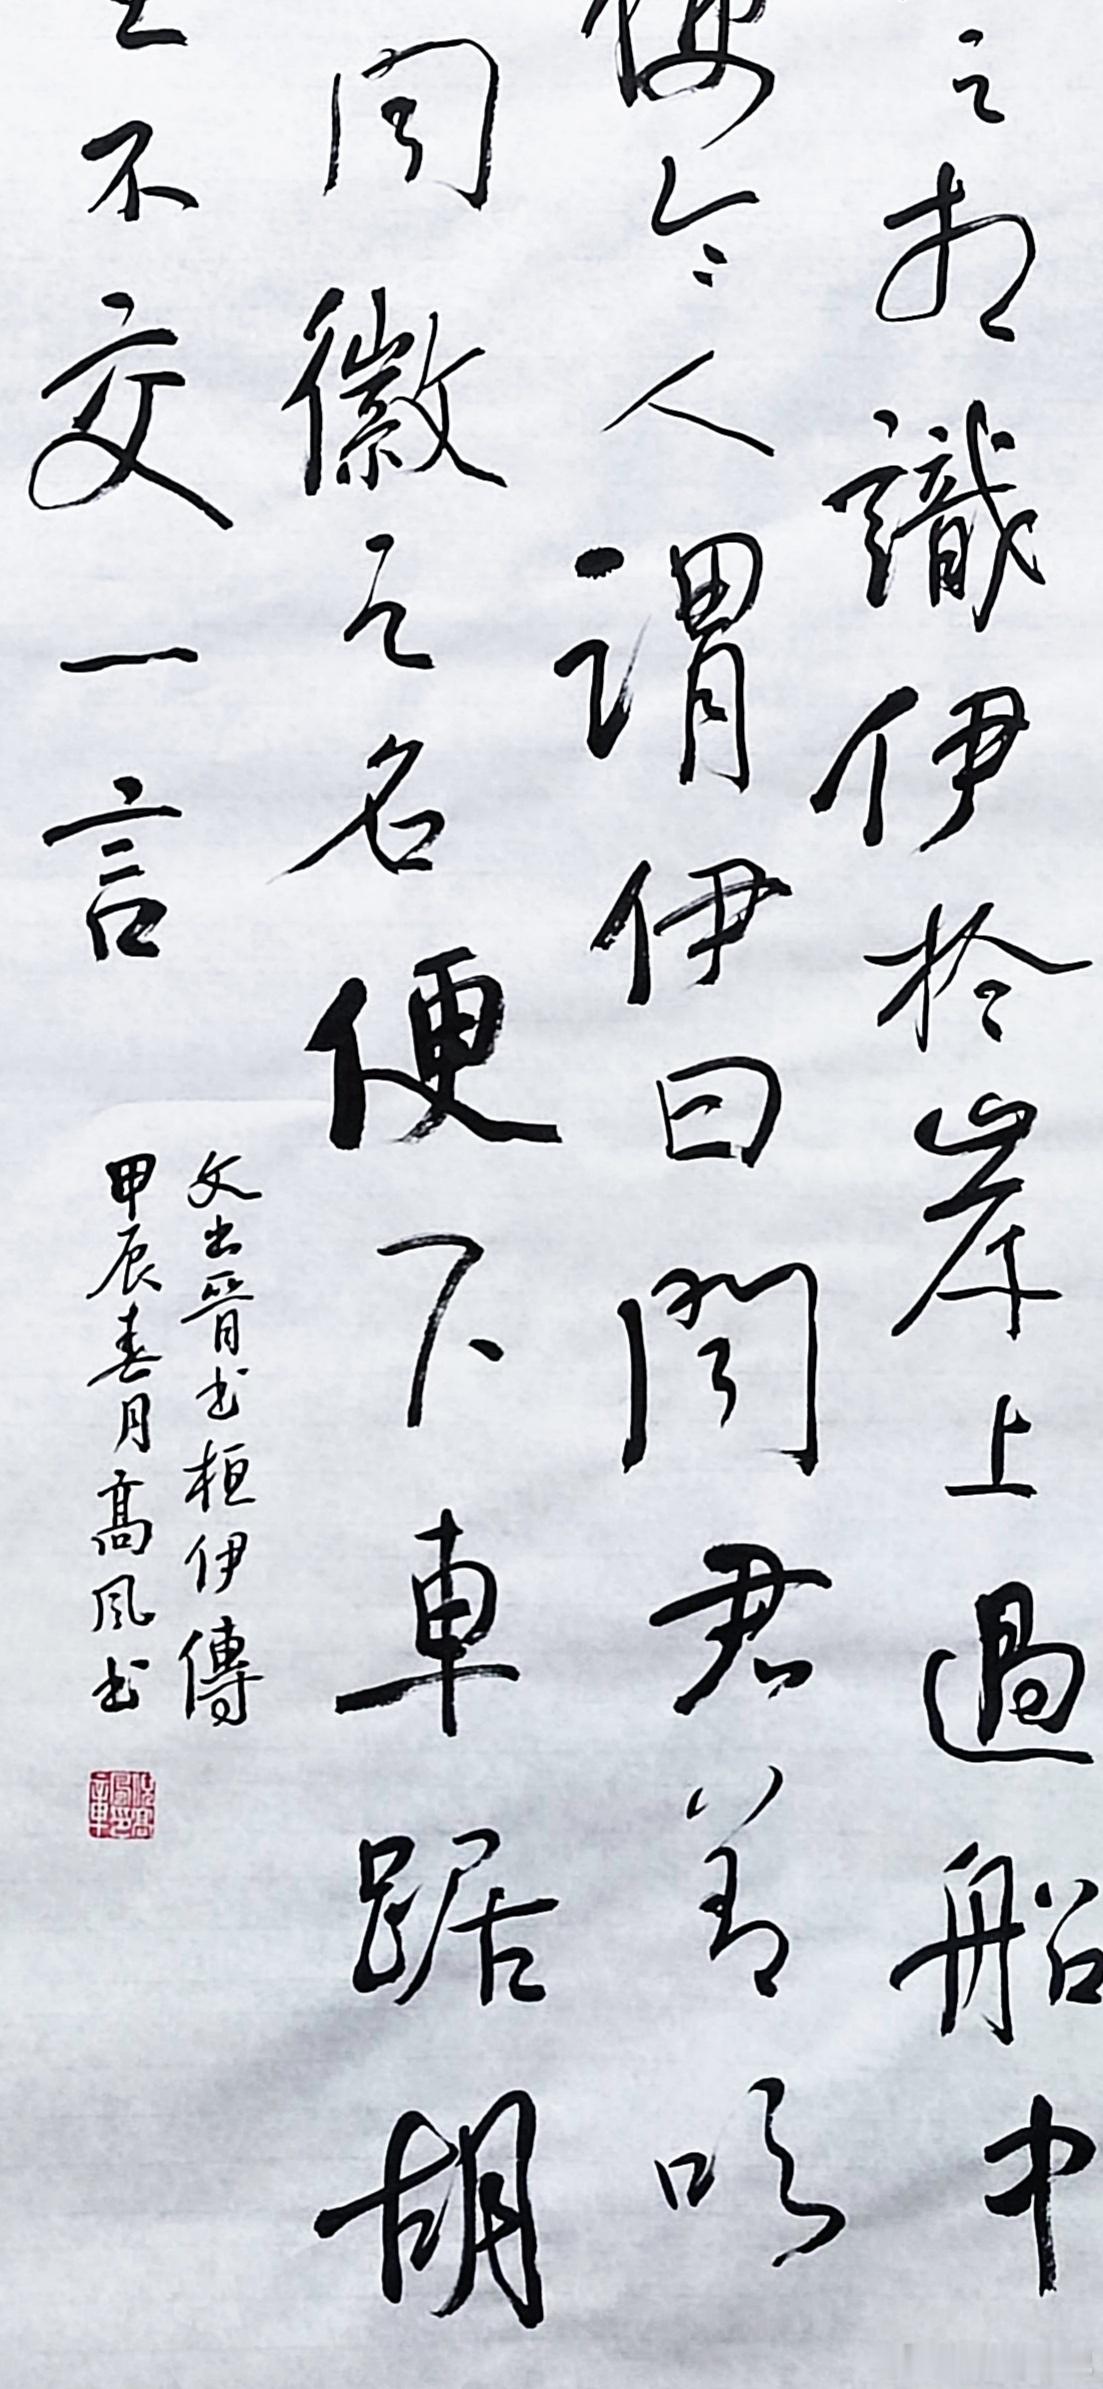 之相識伊於岸上過船中
便令人謂伊曰聞君善吹
聞徽之名便下車踞胡
上不交一言
文出晉书桓伊傳
甲辰春月高风书